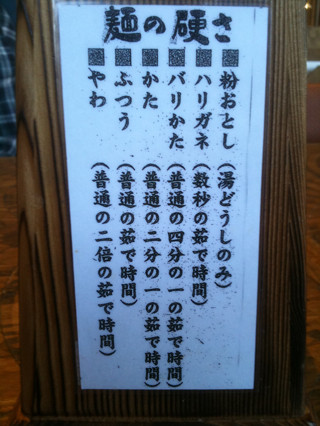 麺の硬さ
■粉おとし(湯どうしのみ)
■ハリガネ(数秒の茹で時間)
■バリかた(普通の四分の一の茹で時間)
■かた(普通の二分の一の茹で時間)
■ふつう(普通の茹で時間)
■やわ(普通の二倍の茹で時間)